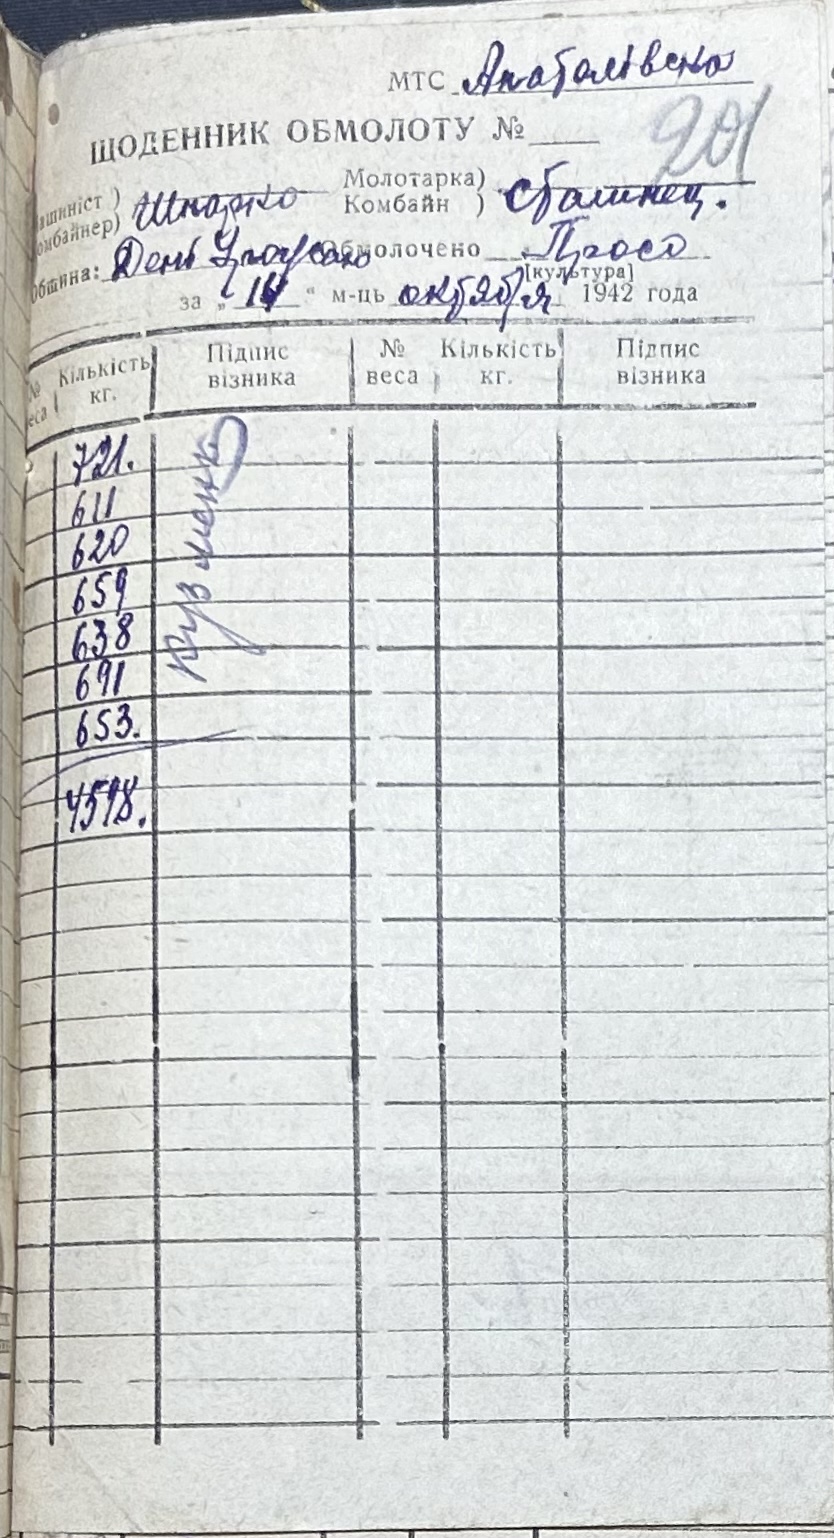 МТС Анатолівсно
ЩОДЕННИК ОБМОЛОТУ №
201
ашиніст )
омбайнер) Шпарко
Молотарка)
Комбайн ) Сталинец.
Община: День Обмолочено Просо
[культура]
за „ 14 “ м-ць октября 1942 года
№ веса Кількість кг. Підпис візника № веса Кількість кг. Підпис візника
721.
611
620
659
638
691
653.
Кузменко
4598.